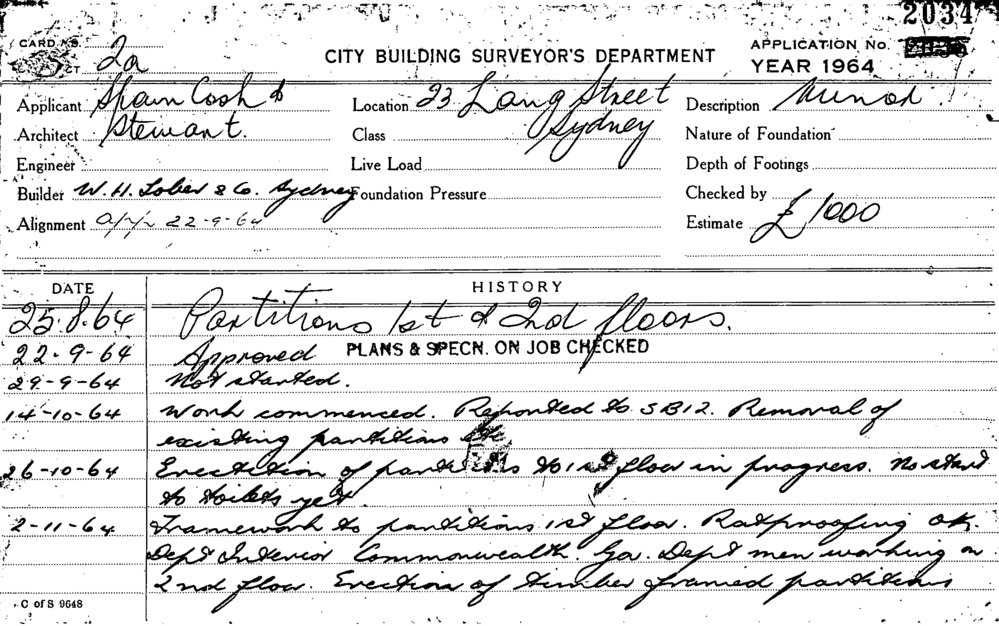 2034
CARD No. 2a
CITY BUILDING SURVEYOR'S DEPARTMENT
APPLICATION No.
YEAR 1964
Applicant Spain Cosh &
Location 23 Lang Street
Description Minor
Architect Stewart.
Class Sydney
Nature of Foundation
Engineer
Live Load
Depth of Footings
Builder W. H. Lober & Co. Sydney
Foundation Pressure
Checked by
Alignment 22-9-64
Estimate £1000
DATE
HISTORY
25.8.64 Partitions 1st & 2nd floors.
22-9-64 Approved PLANS & SPECN. ON JOB CHECKED
29-9-64 Not started.
14-10-64 Work commenced. Reported to SB12. Removal of
existing partitions
26-10-64 Erectition of partitions to 1st floor in progress. No start
to toilets yet.
2-11-64 Framework to partitions 1st floor. Ratproofing OK.
Dept Interior Commonwealth Ga. Dept men working on
2nd floor. Erection of timber framed partitions
C of S 9648